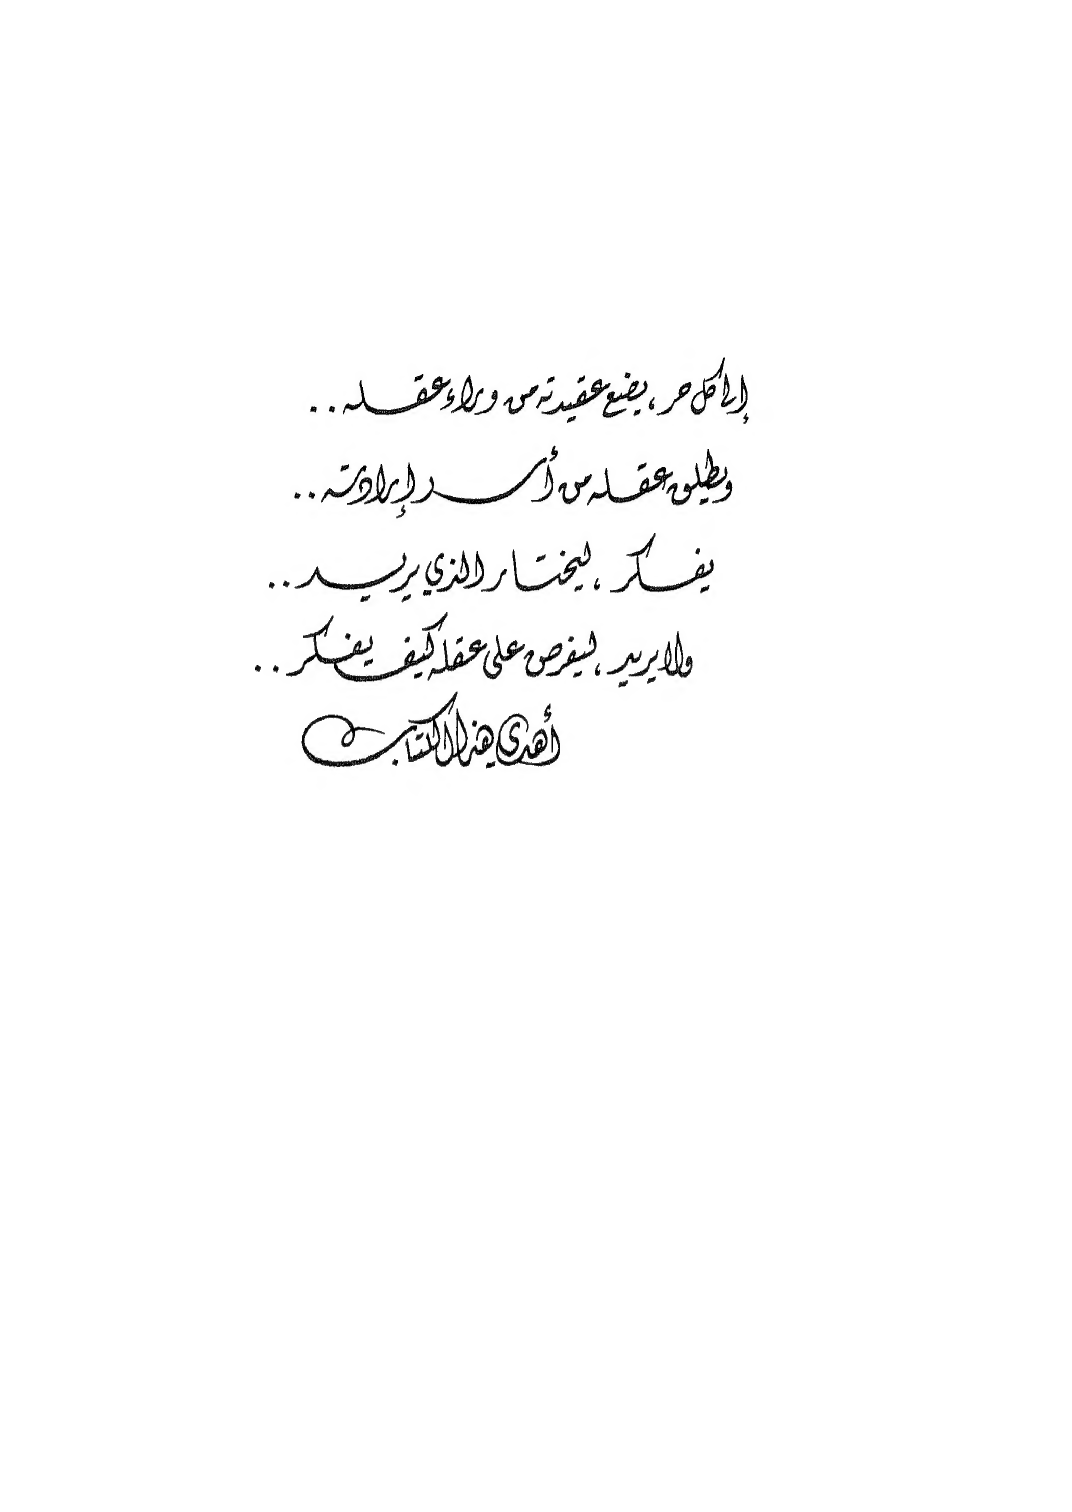 إلى كل حر ، يضع عقيدته من وراء عقله . .
ويطلق عقله من أسر إرادته . .
يفكر ، ليختار الذي يريد . .
ولا يريد ، ليفرض على عقله كيف يفكر . .
أهدي هذا الكتاب